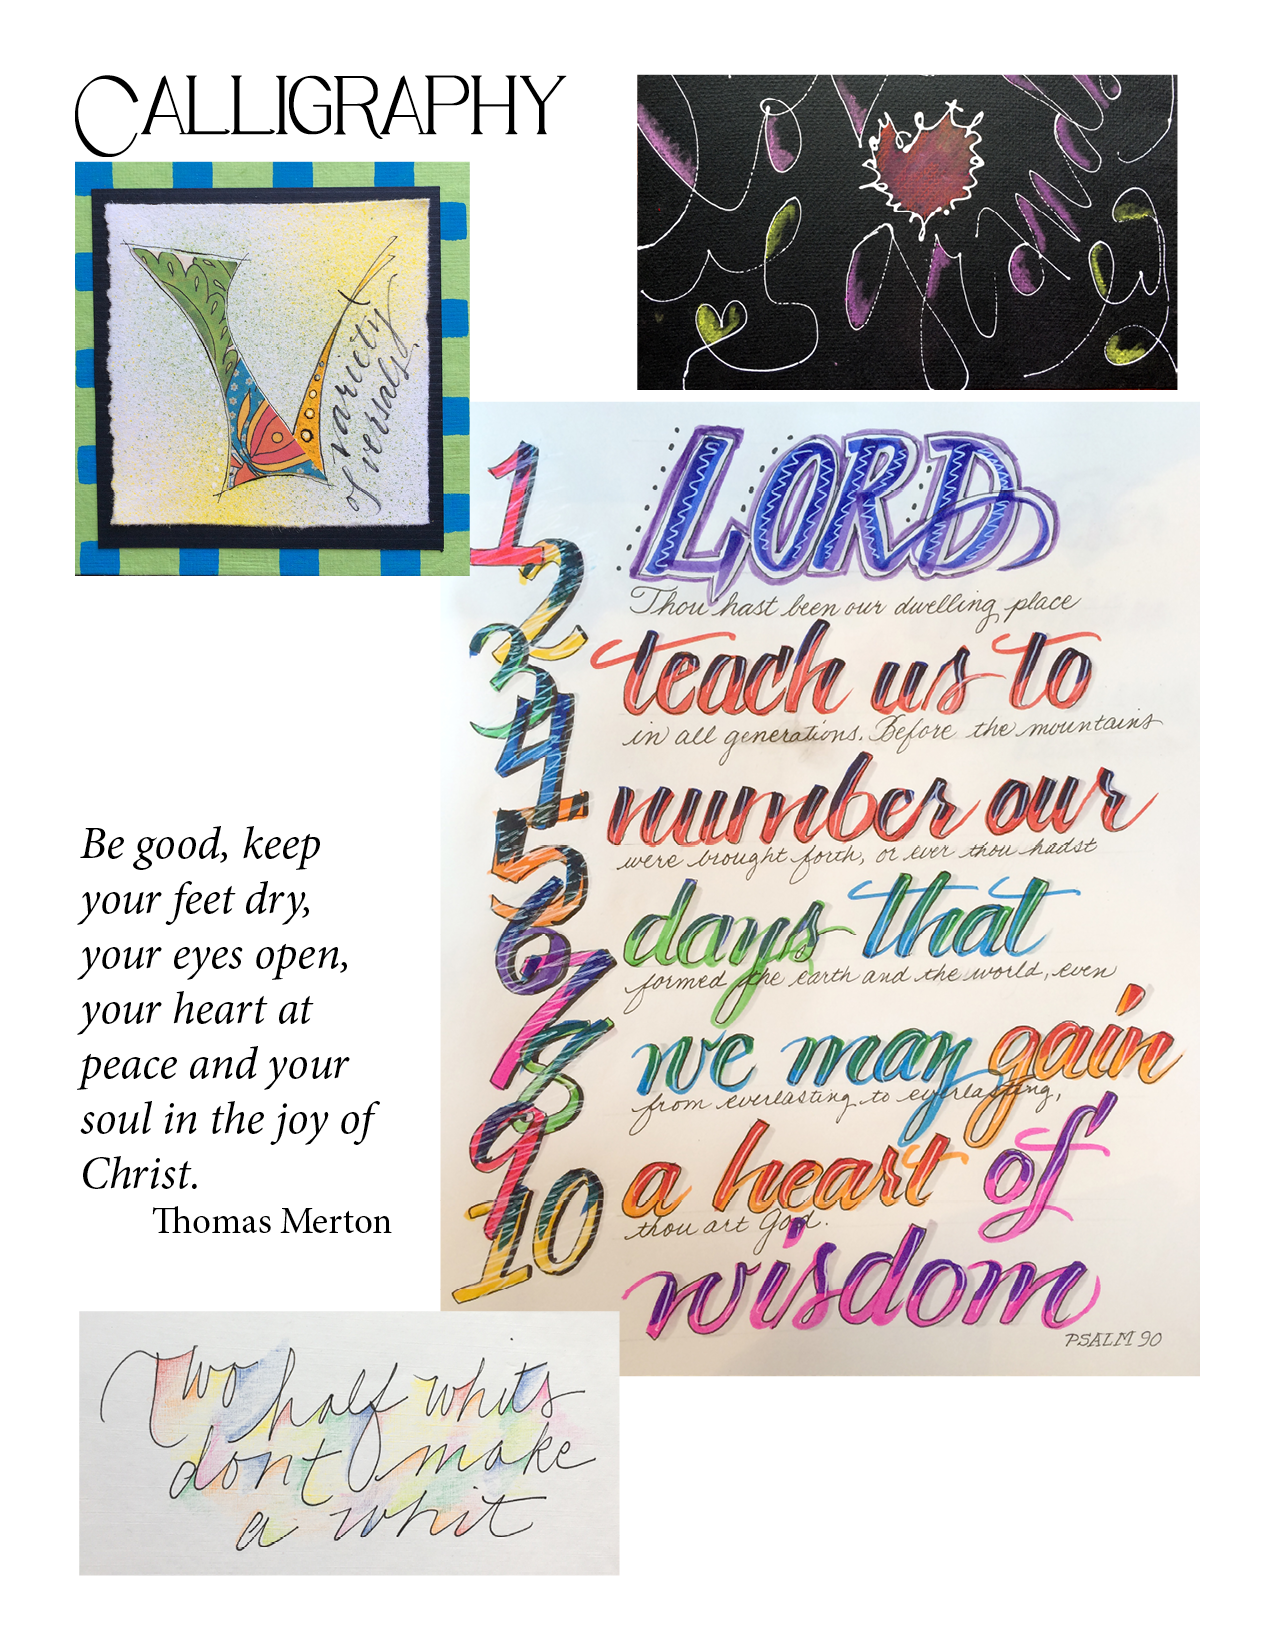 CALLIGRAPHY
V
variety
of versals
1
2
3
4
5
6
7
8
9
10
LORD
Thou hast been our dwelling place
teach us to
in all generations. Before the mountains
number our
were brought forth, or ever thou hadst
days that
formed the earth and the world, even
we may gain
from everlasting to everlasting,
a heart of
thou art God.
wisdom
PSALM 90
Be good, keep
your feet dry,
your eyes open,
your heart at
peace and your
soul in the joy of
Christ.
Thomas Merton
Two half whits
dont make
a whit